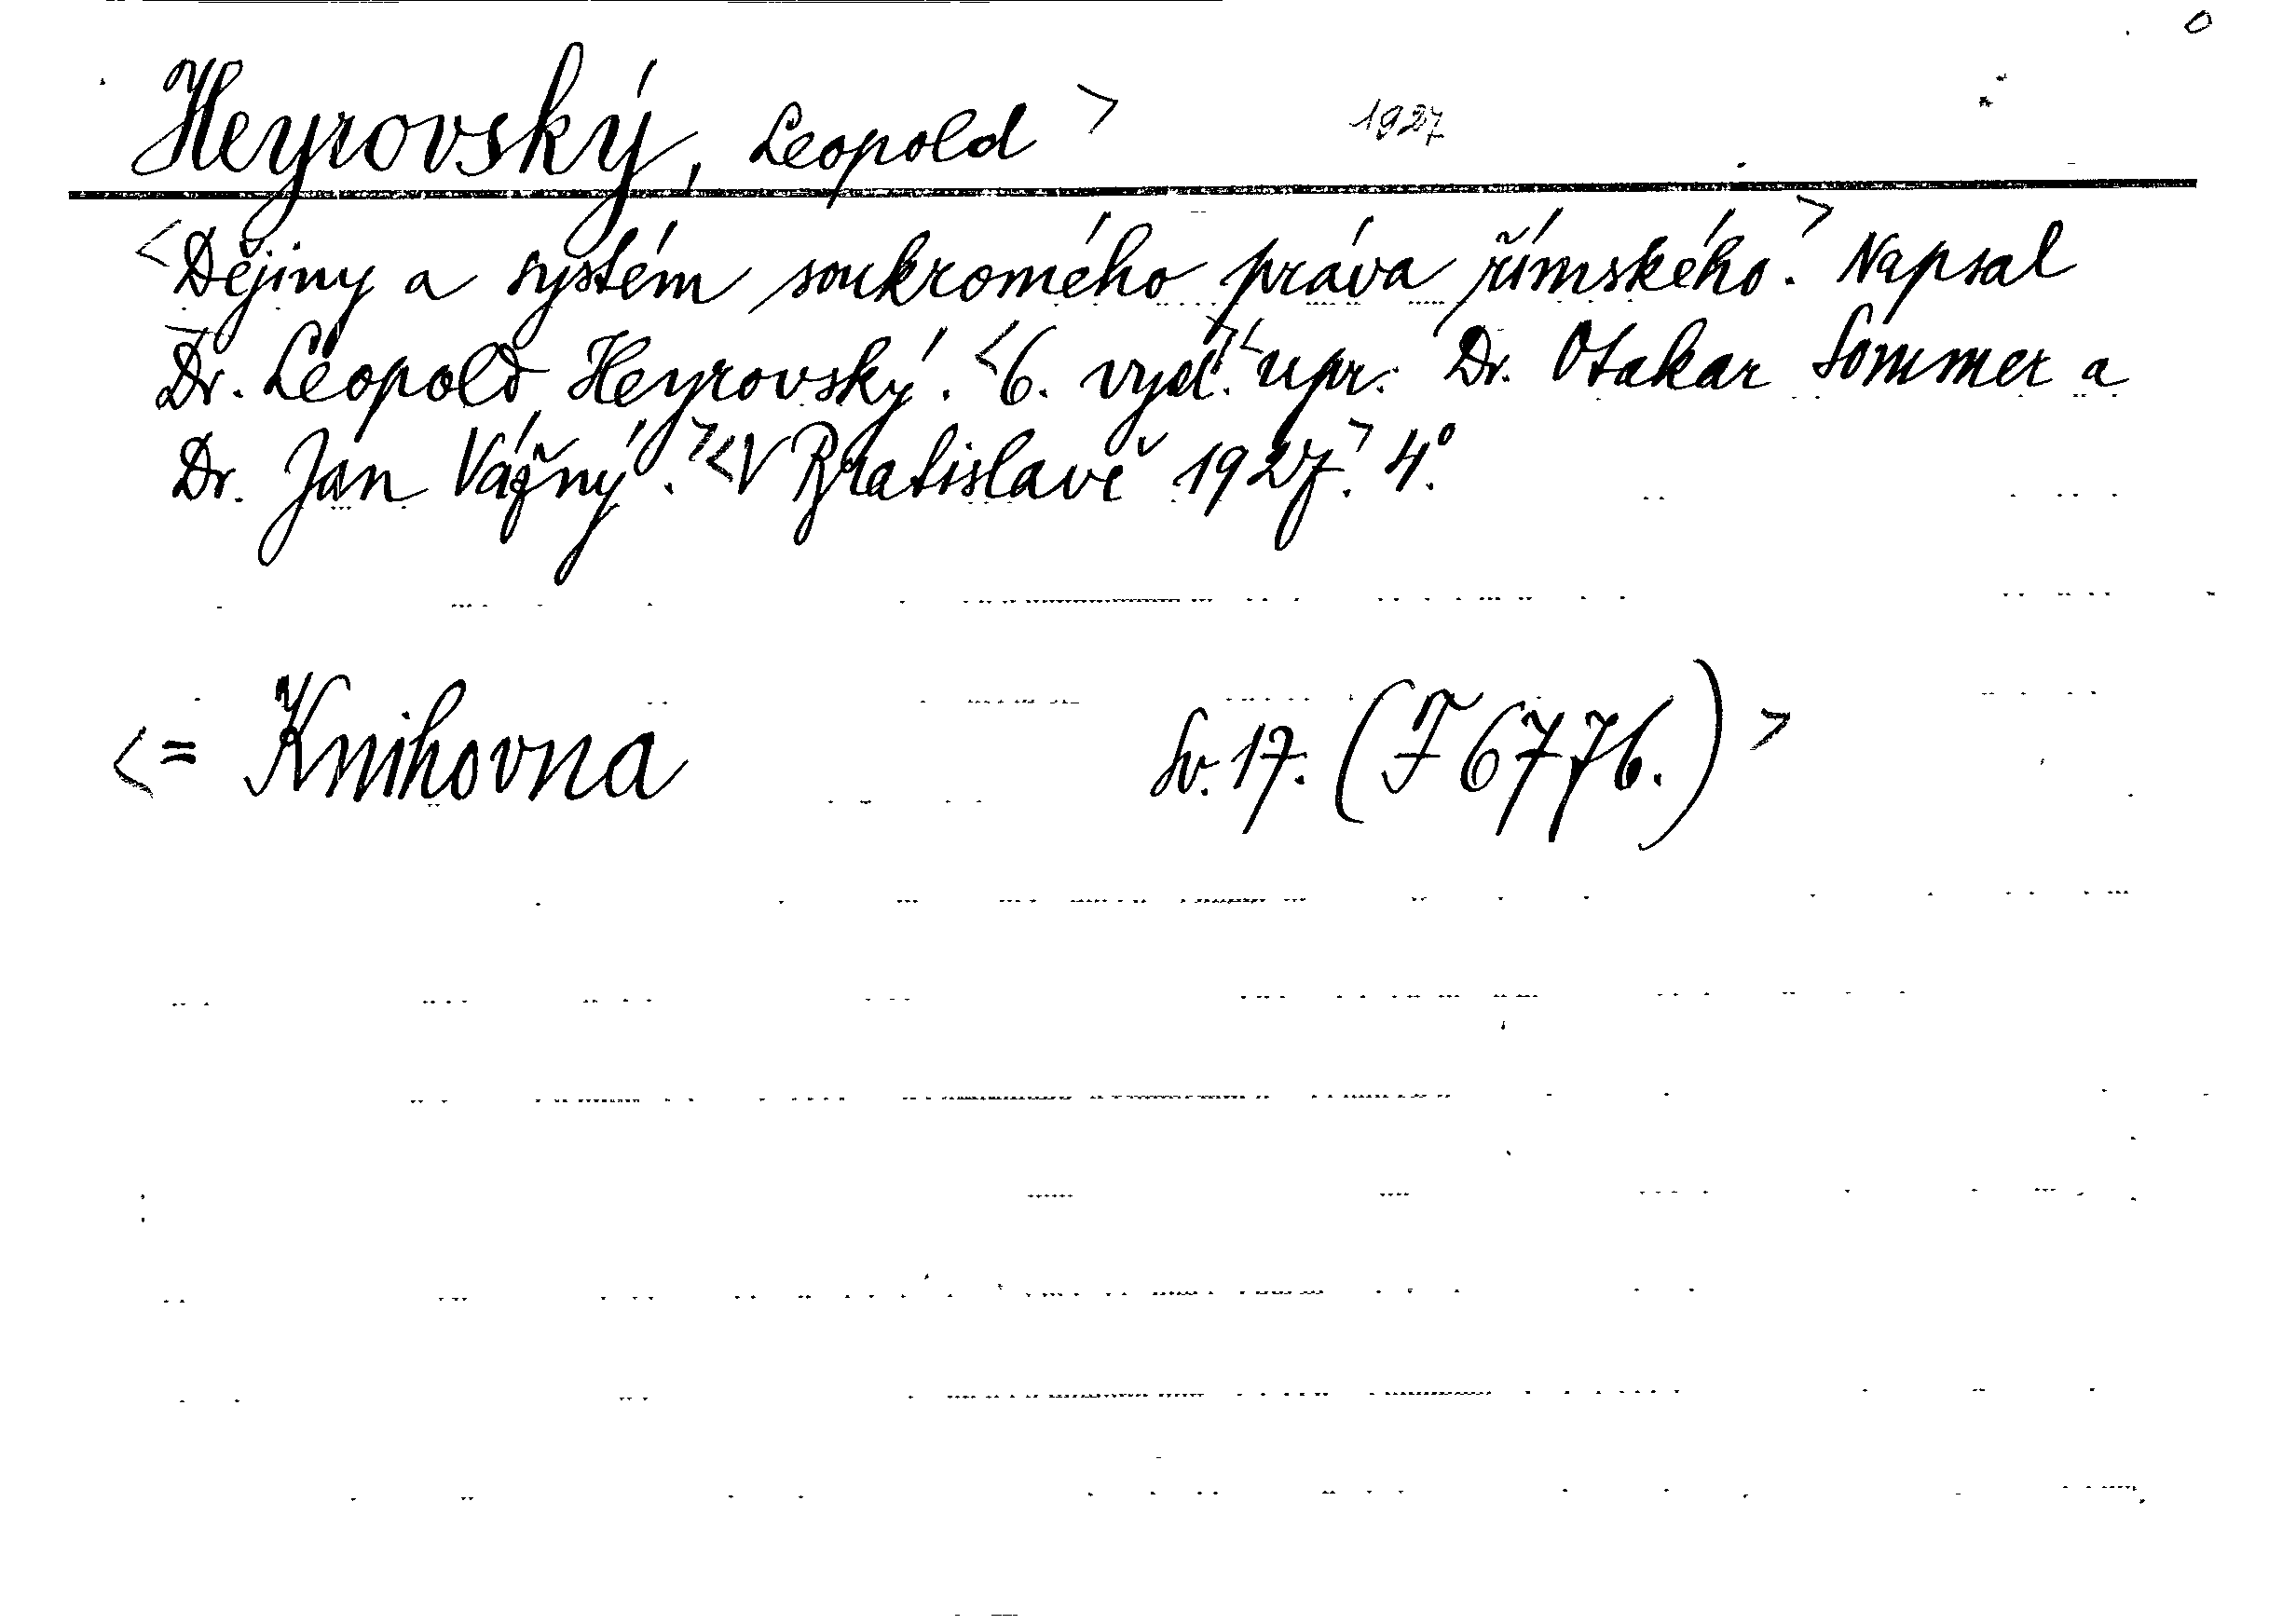 Heyrovský, Leopold > 1927
<Dějiny a systém soukromého práva římského.> Napsal
Dr. Leopold Heyrovský. <6. vyd.> <upr. Dr. Otakar Sommer a
Dr. Jan Vážný.> <V Bratislavě 1927.> 4°.
<= Knihovna Sv. 17. (F 6776.) >